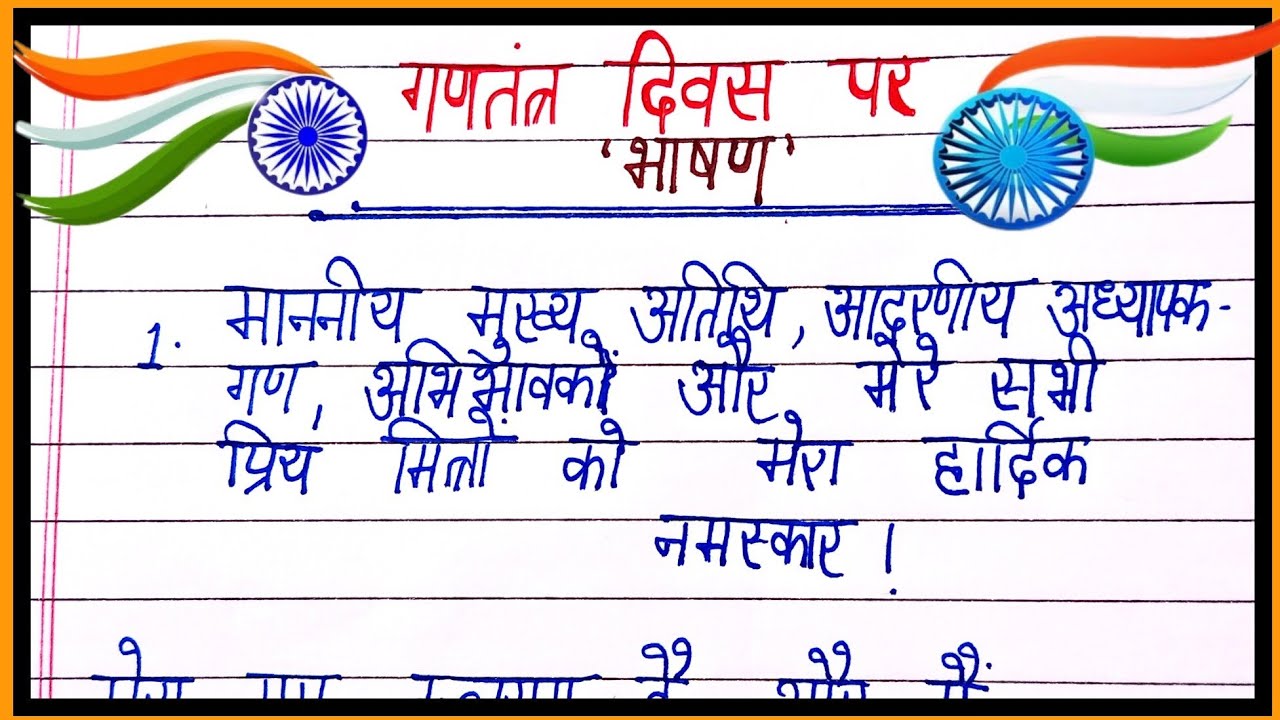 गणतंत्र दिवस पर
'भाषण'
1. माननीय मुख्य अतिथि, आदरणीय अध्यापक-
गण, अभिभावकों और मेरे सभी
प्रिय मित्रों को मेरा हार्दिक
नमस्कार।
है और मैं